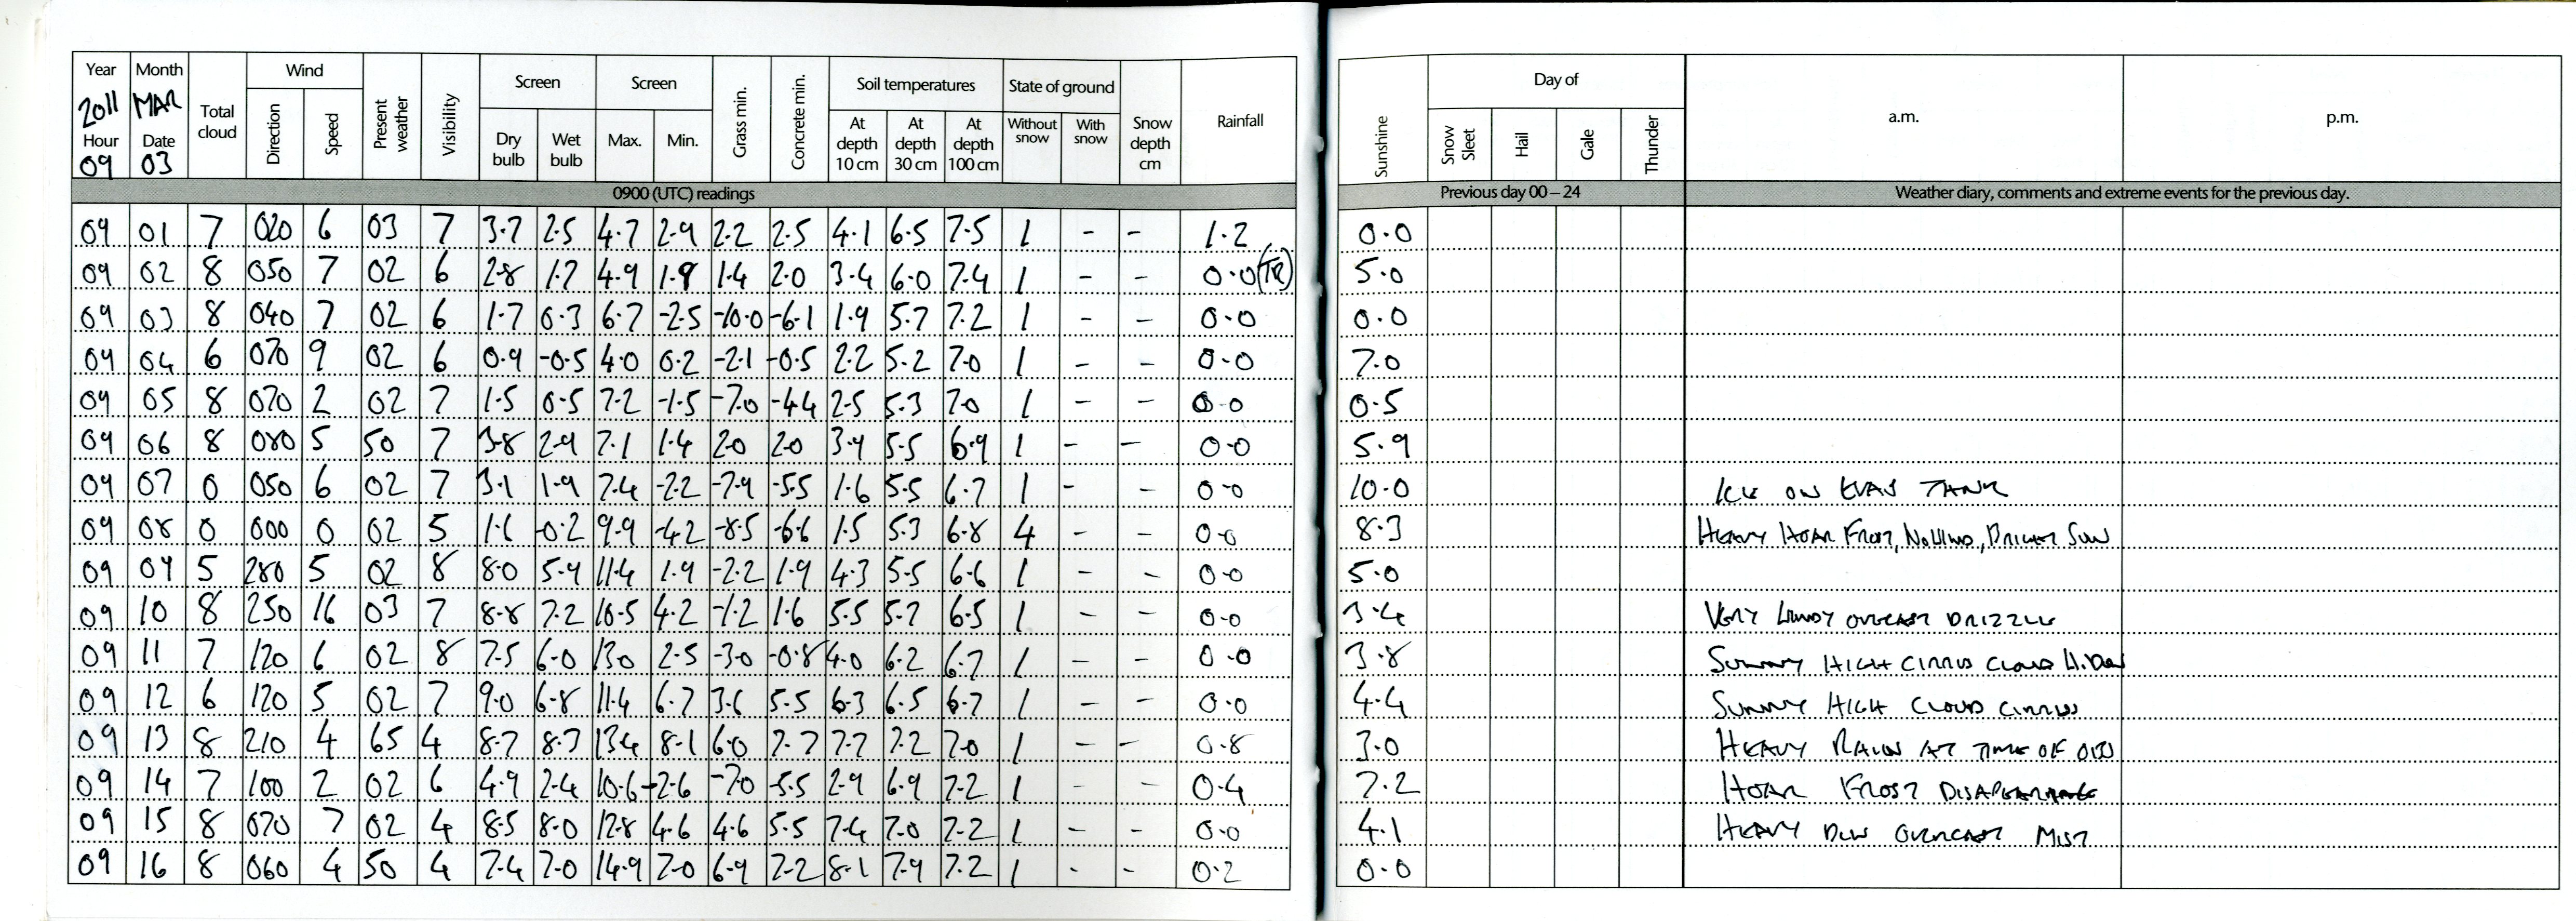 Year Month Total cloud Wind Present weather Visibility Screen Screen Grass min. Concrete min. Soil temperatures State of ground Snow depth cm Rainfall Sunshine Day of a.m. p.m.
2011 MAR Direction Speed Dry bulb Wet bulb Max. Min. At depth 10 cm At depth 30 cm At depth 100 cm Without snow With snow Snow Sleet Hail Gale Thunder
Hour Date
09 03
0900 (UTC) readings Previous day 00 – 24 Weather diary, comments and extreme events for the previous day.
09 01 7 020 6 03 7 3.7 2.5 4.7 2.9 2.2 2.5 4.1 6.5 7.5 1 - - 1.2 0.0
09 02 8 050 7 02 6 2.8 1.7 4.9 1.9 1.4 2.0 3.4 6.0 7.4 1 - - 0.0 (TR) 5.0
09 03 8 040 7 02 6 1.7 0.3 6.7 -2.5 -10.0 -6.1 1.9 5.7 7.2 1 - - 0.0 0.0
09 04 6 070 9 02 6 0.9 -0.5 4.0 0.2 -2.1 -0.5 2.2 5.2 7.0 1 - - 0.0 7.0
09 05 8 070 2 02 7 1.5 0.5 7.2 -1.5 -7.0 -4.4 2.5 5.3 7.0 1 - - 0.0 0.5
09 06 8 080 5 50 7 3.8 2.9 7.1 1.4 2.0 2.0 3.9 5.5 6.9 1 - - 0.0 5.9
09 07 0 050 6 02 7 3.1 1.9 7.4 -2.2 -7.9 -5.5 1.6 5.5 6.7 1 - - 0.0 10.0 ICE ON EVAP TANK
09 08 0 000 0 02 5 1.6 -0.2 9.9 -4.2 -8.5 -6.6 1.5 5.3 6.8 4 - - 0.0 8.3 HEAVY HOAR FROST, NO WIND, BRIGHT SUN
09 09 5 280 5 02 8 8.0 5.9 11.4 1.9 -2.2 1.9 4.3 5.5 6.6 1 - - 0.0 5.0
09 10 8 250 16 03 7 8.8 7.2 10.5 4.2 -1.2 1.6 5.5 5.7 6.5 1 - - 0.0 3.4 VERY WINDY OVERCAST DRIZZLE
09 11 7 120 6 02 8 7.5 6.0 13.0 2.5 -3.0 -0.8 4.0 6.2 6.7 1 - - 0.0 3.8 SUNNY HIGH CIRRUS CLOUD
09 12 6 120 5 02 7 9.0 6.8 11.4 6.7 3.6 5.5 6.3 6.5 6.7 1 - - 0.0 4.4 SUNNY HIGH CLOUD CIRRUS
09 13 8 210 4 65 4 8.7 8.3 13.4 8.1 6.0 7.7 7.7 7.2 7.0 1 - - 0.8 3.0 HEAVY RAIN AT TIME OF OBS
09 14 7 100 2 02 6 4.9 2.4 10.6 -2.6 -7.0 -5.5 2.9 6.9 7.2 1 - - 0.4 7.2 HOAR FROST
09 15 8 070 7 02 4 8.5 8.0 12.8 4.6 4.6 5.5 7.4 7.0 7.2 1 - - 0.0 4.1 HEAVY DEW OVERCAST MIST
09 16 8 060 4 50 4 7.4 7.0 14.9 7.0 6.9 7.2 8.1 7.9 7.2 1 - - 0.2 0.0